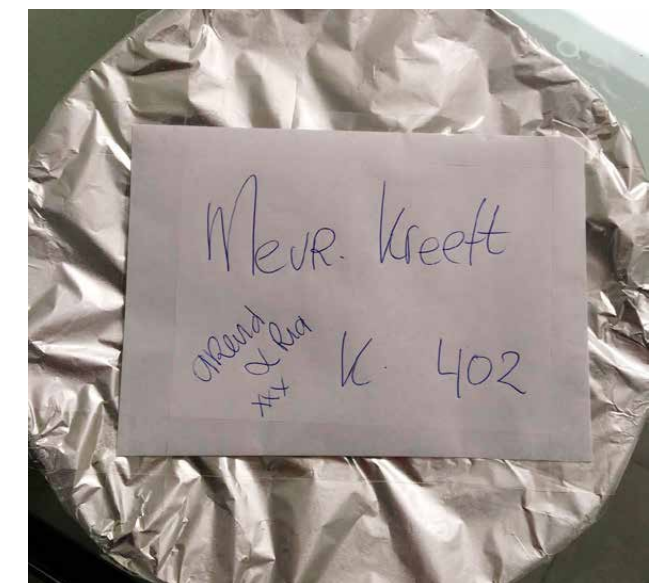 Mevr. Kreeft
Arend
& Ria
xxx
K. 402